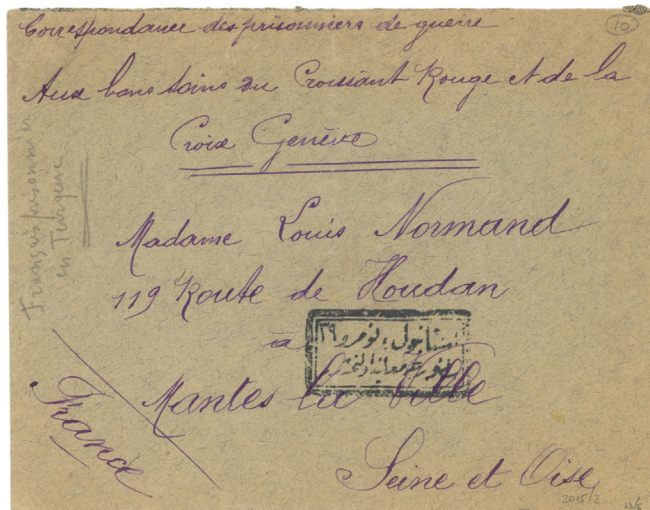 Correspondance des prisonniers de guerre
10
Aux bons soins du Croissant Rouge et de la
Croix Genève
Français prisonnier
en Turquie
Madame Louis Normand
119 Route de Houdan
à
استانبول، نومرو ٣٩
Mantes la Ville
France
Seine et Oise
2015/2